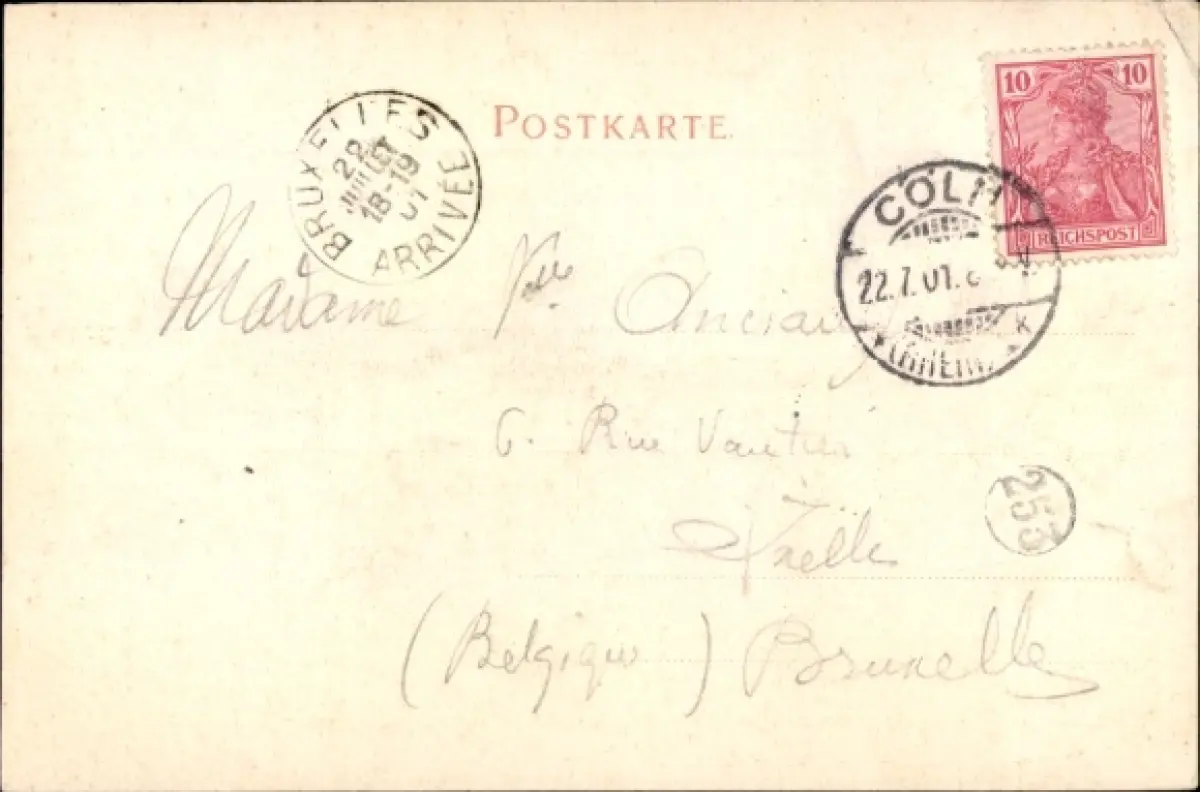 POSTKARTE.
10 10
REICHSPOST
BRUXELLES
22
JUILLET
18-19
01
ARRIVÉE
CÖLN
22.7.01.
* (RHEIN) * k
Madame Vve Anciaux
6. Rue Vautier
Ixelles
253
(Belgique) Bruxelles